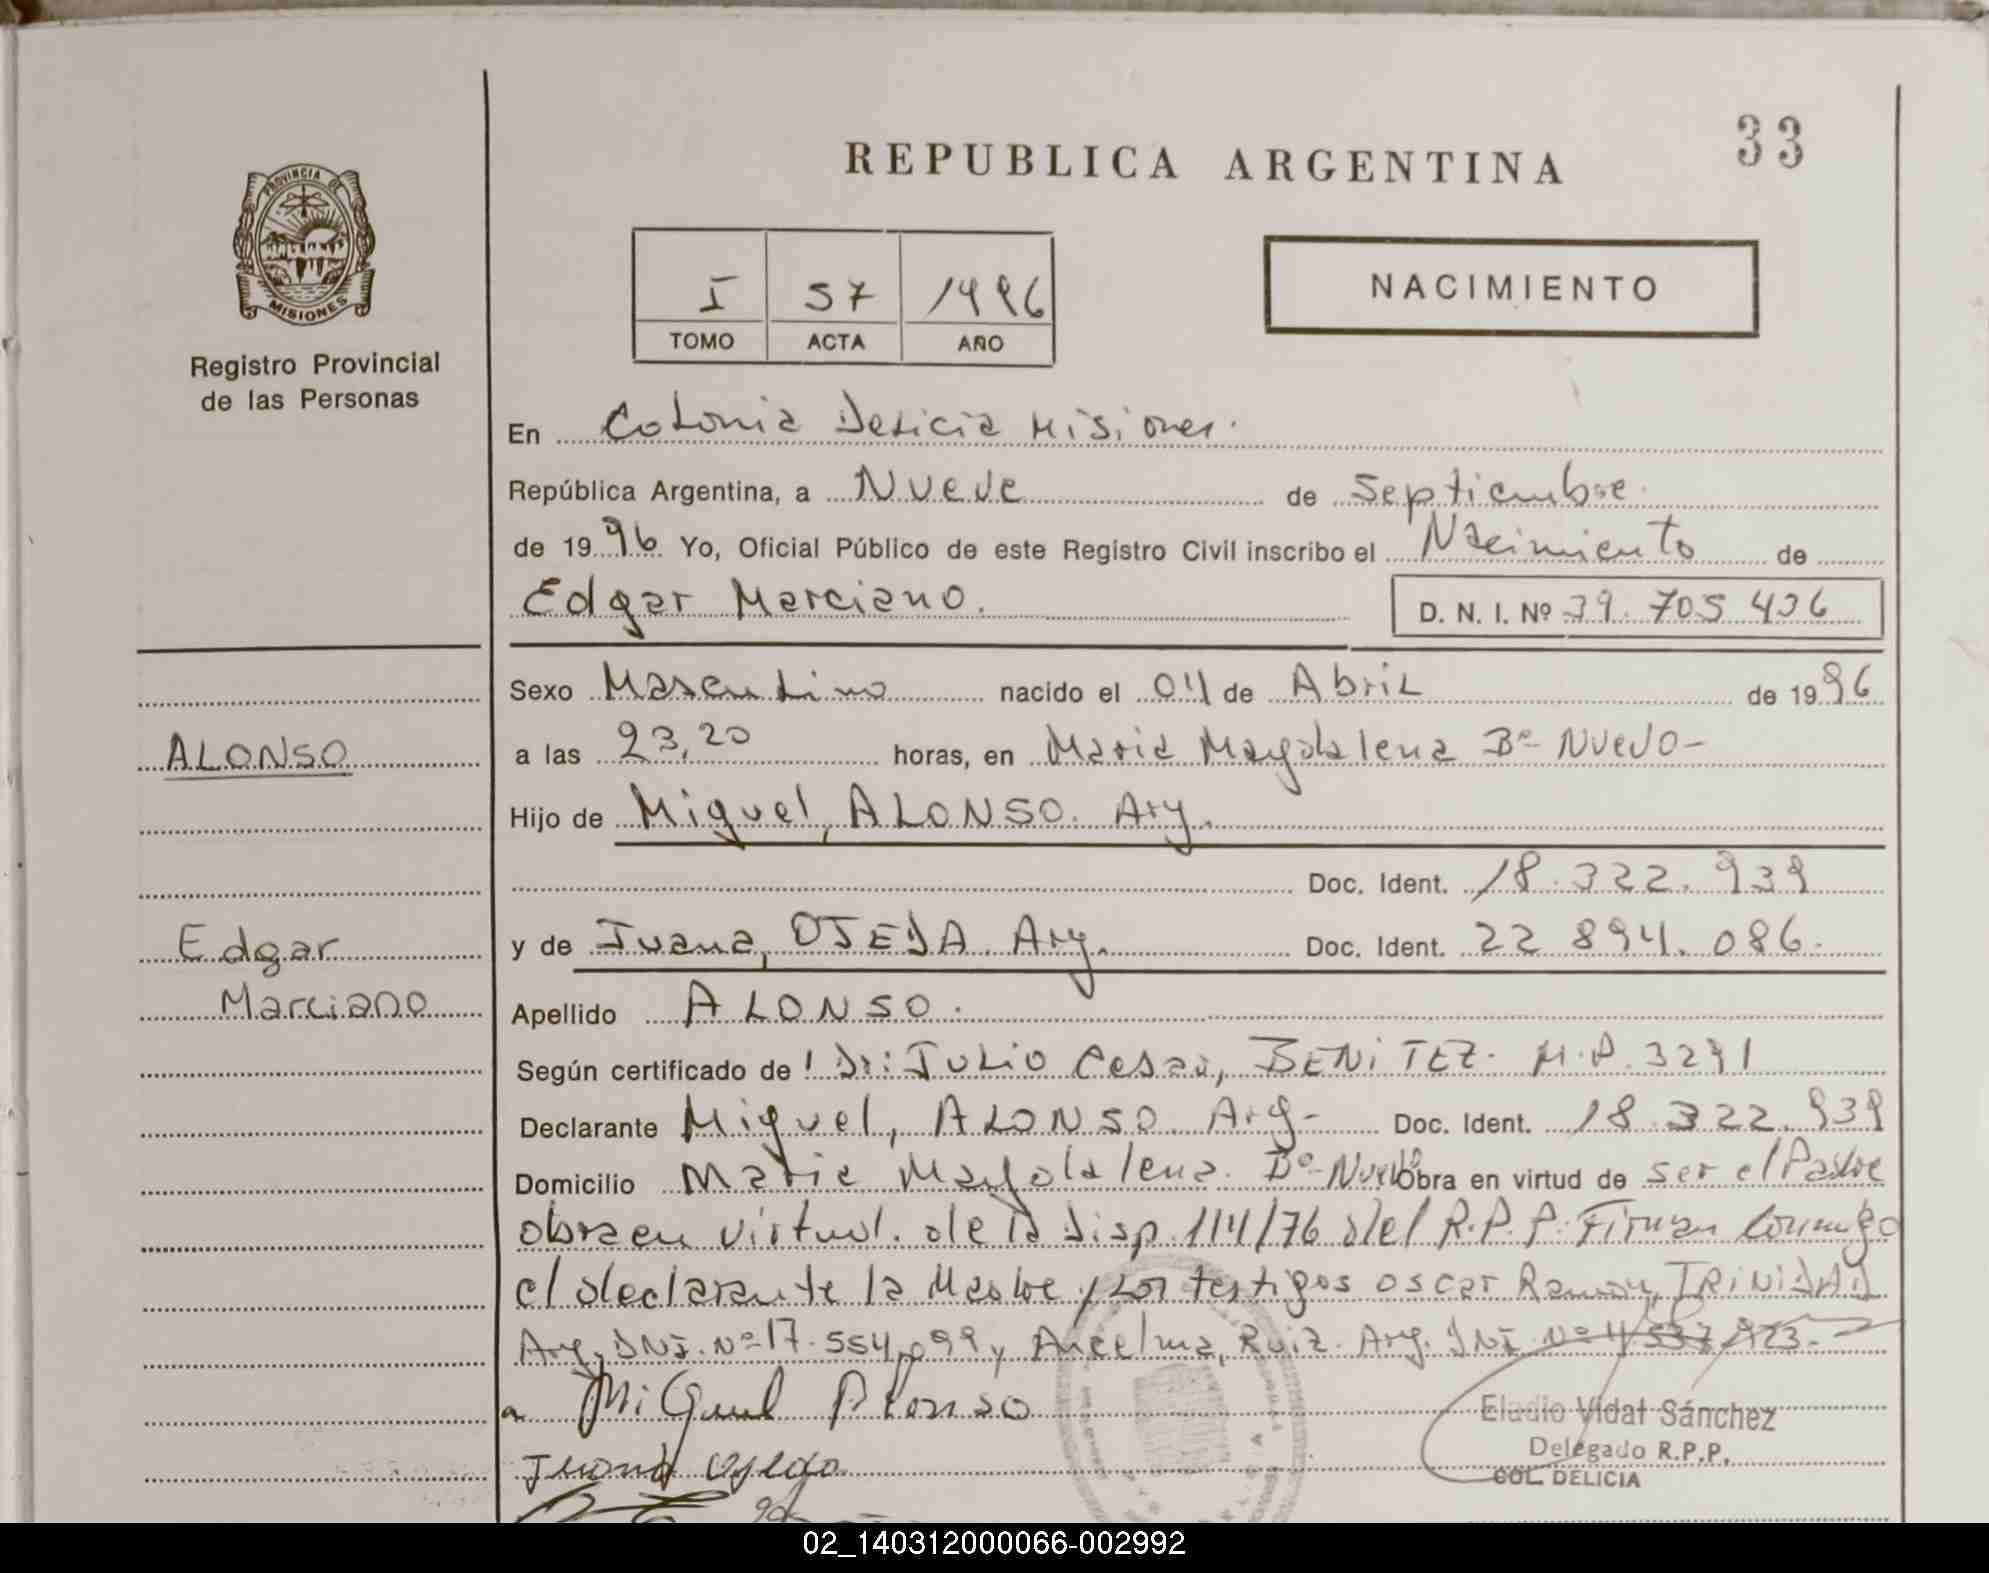 33
REPUBLICA ARGENTINA
PROVINCIA DE
MISIONES
I 57 1996
TOMO ACTA AÑO
NACIMIENTO
Registro Provincial
de las Personas
En Colonia Delicia Misiones.
República Argentina, a Nueve de Septiembre.
de 1996 Yo, Oficial Público de este Registro Civil inscribo el Nacimiento de
Edgar Marciano. D. N. I. Nº 39.705 436
Sexo Masculino nacido el 04 de Abril de 1996
ALONSO
a las 23,20 horas, en Maria Magdalena Bº Nuevo-
Hijo de Miguel, ALONSO. Arg.
Doc. Ident. 18.322.939
Edgar
y de Juana, OJEDA. Arg. Doc. Ident. 22 894.086.
Marciano
Apellido ALONSO.
Según certificado de Dr: JULIO Cesar, BENITEZ. M.P. 3291
Declarante Miguel, ALONSO Arg- Doc. Ident. 18.322.939
Domicilio Maria Magdalena. Bº-Nuevo Obra en virtud de ser el Padre
obra en virtud. de la Disp. 114/76 del R.P.P. Firman Conmigo
el declarante la Madre y Los testigos Oscar Ramon, TRINIDAD
Arg, DNI. Nº 17.554,099 y Ancelma, Ruiz. Arg. DNI Nº
Miguel Alonso
Eladio Vidal Sánchez
Delegado R.P.P.
COL. DELICIA
Juana Ojeda
02_140312000066-002992